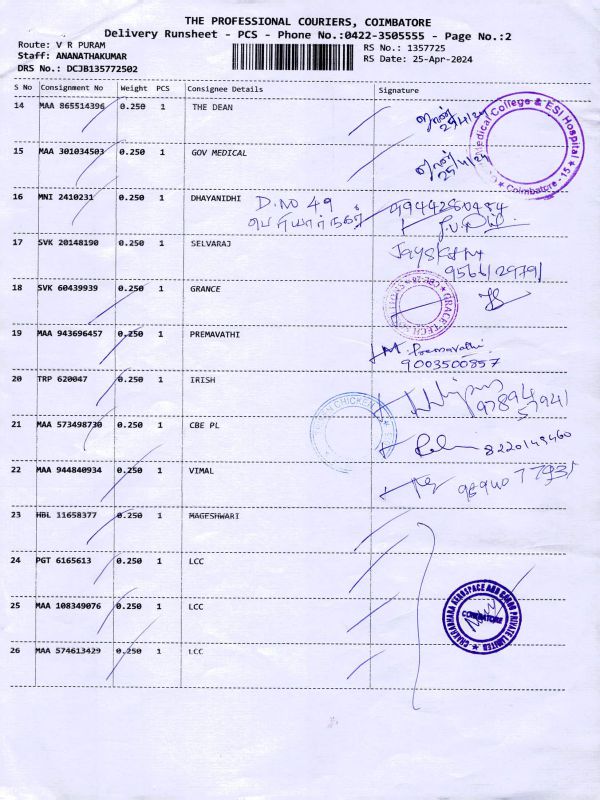 THE PROFESSIONAL COURIERS, COIMBATORE
Delivery Runsheet - PCS - Phone No.:0422-3505555 - Page No.:2
Route: V R PURAM
Staff: ANANATHAKUMAR
DRS No.: DCJB135772502
RS No.: 1357725
RS Date: 25-Apr-2024
S No Consignment No Weight PCS Consignee Details Signature
14 MAA 865514396 0.250 1 THE DEAN
15 MAA 301034503 0.250 1 GOV MEDICAL
Medical College & ESI Hospital
Coimbatore - 15
16 MNI 2410231 0.250 1 DHAYANIDHI D.NO 49 9944280484
பெரியார்நகர்
17 SVK 20148190 0.250 1 SELVARAJ
18 SVK 60439939 0.250 1 GRANCE
GRACE TECH
19 MAA 943696457 0.250 1 PREMAVATHI M. Premavathi
9003500857
20 TRP 620047 0.250 1 IRISH
21 MAA 573498730 0.250 1 CBE PL 8220149460
CHICKEN
22 MAA 944840934 0.250 1 VIMAL
23 HBL 11658377 0.250 1 MAGESHWARI
24 PGT 6165613 0.250 1 LCC
25 MAA 108349076 0.250 1 LCC
AEROSPACE AND CARGO PRIVATE LIMITED
COIMBATORE
26 MAA 574613429 0.250 1 LCC